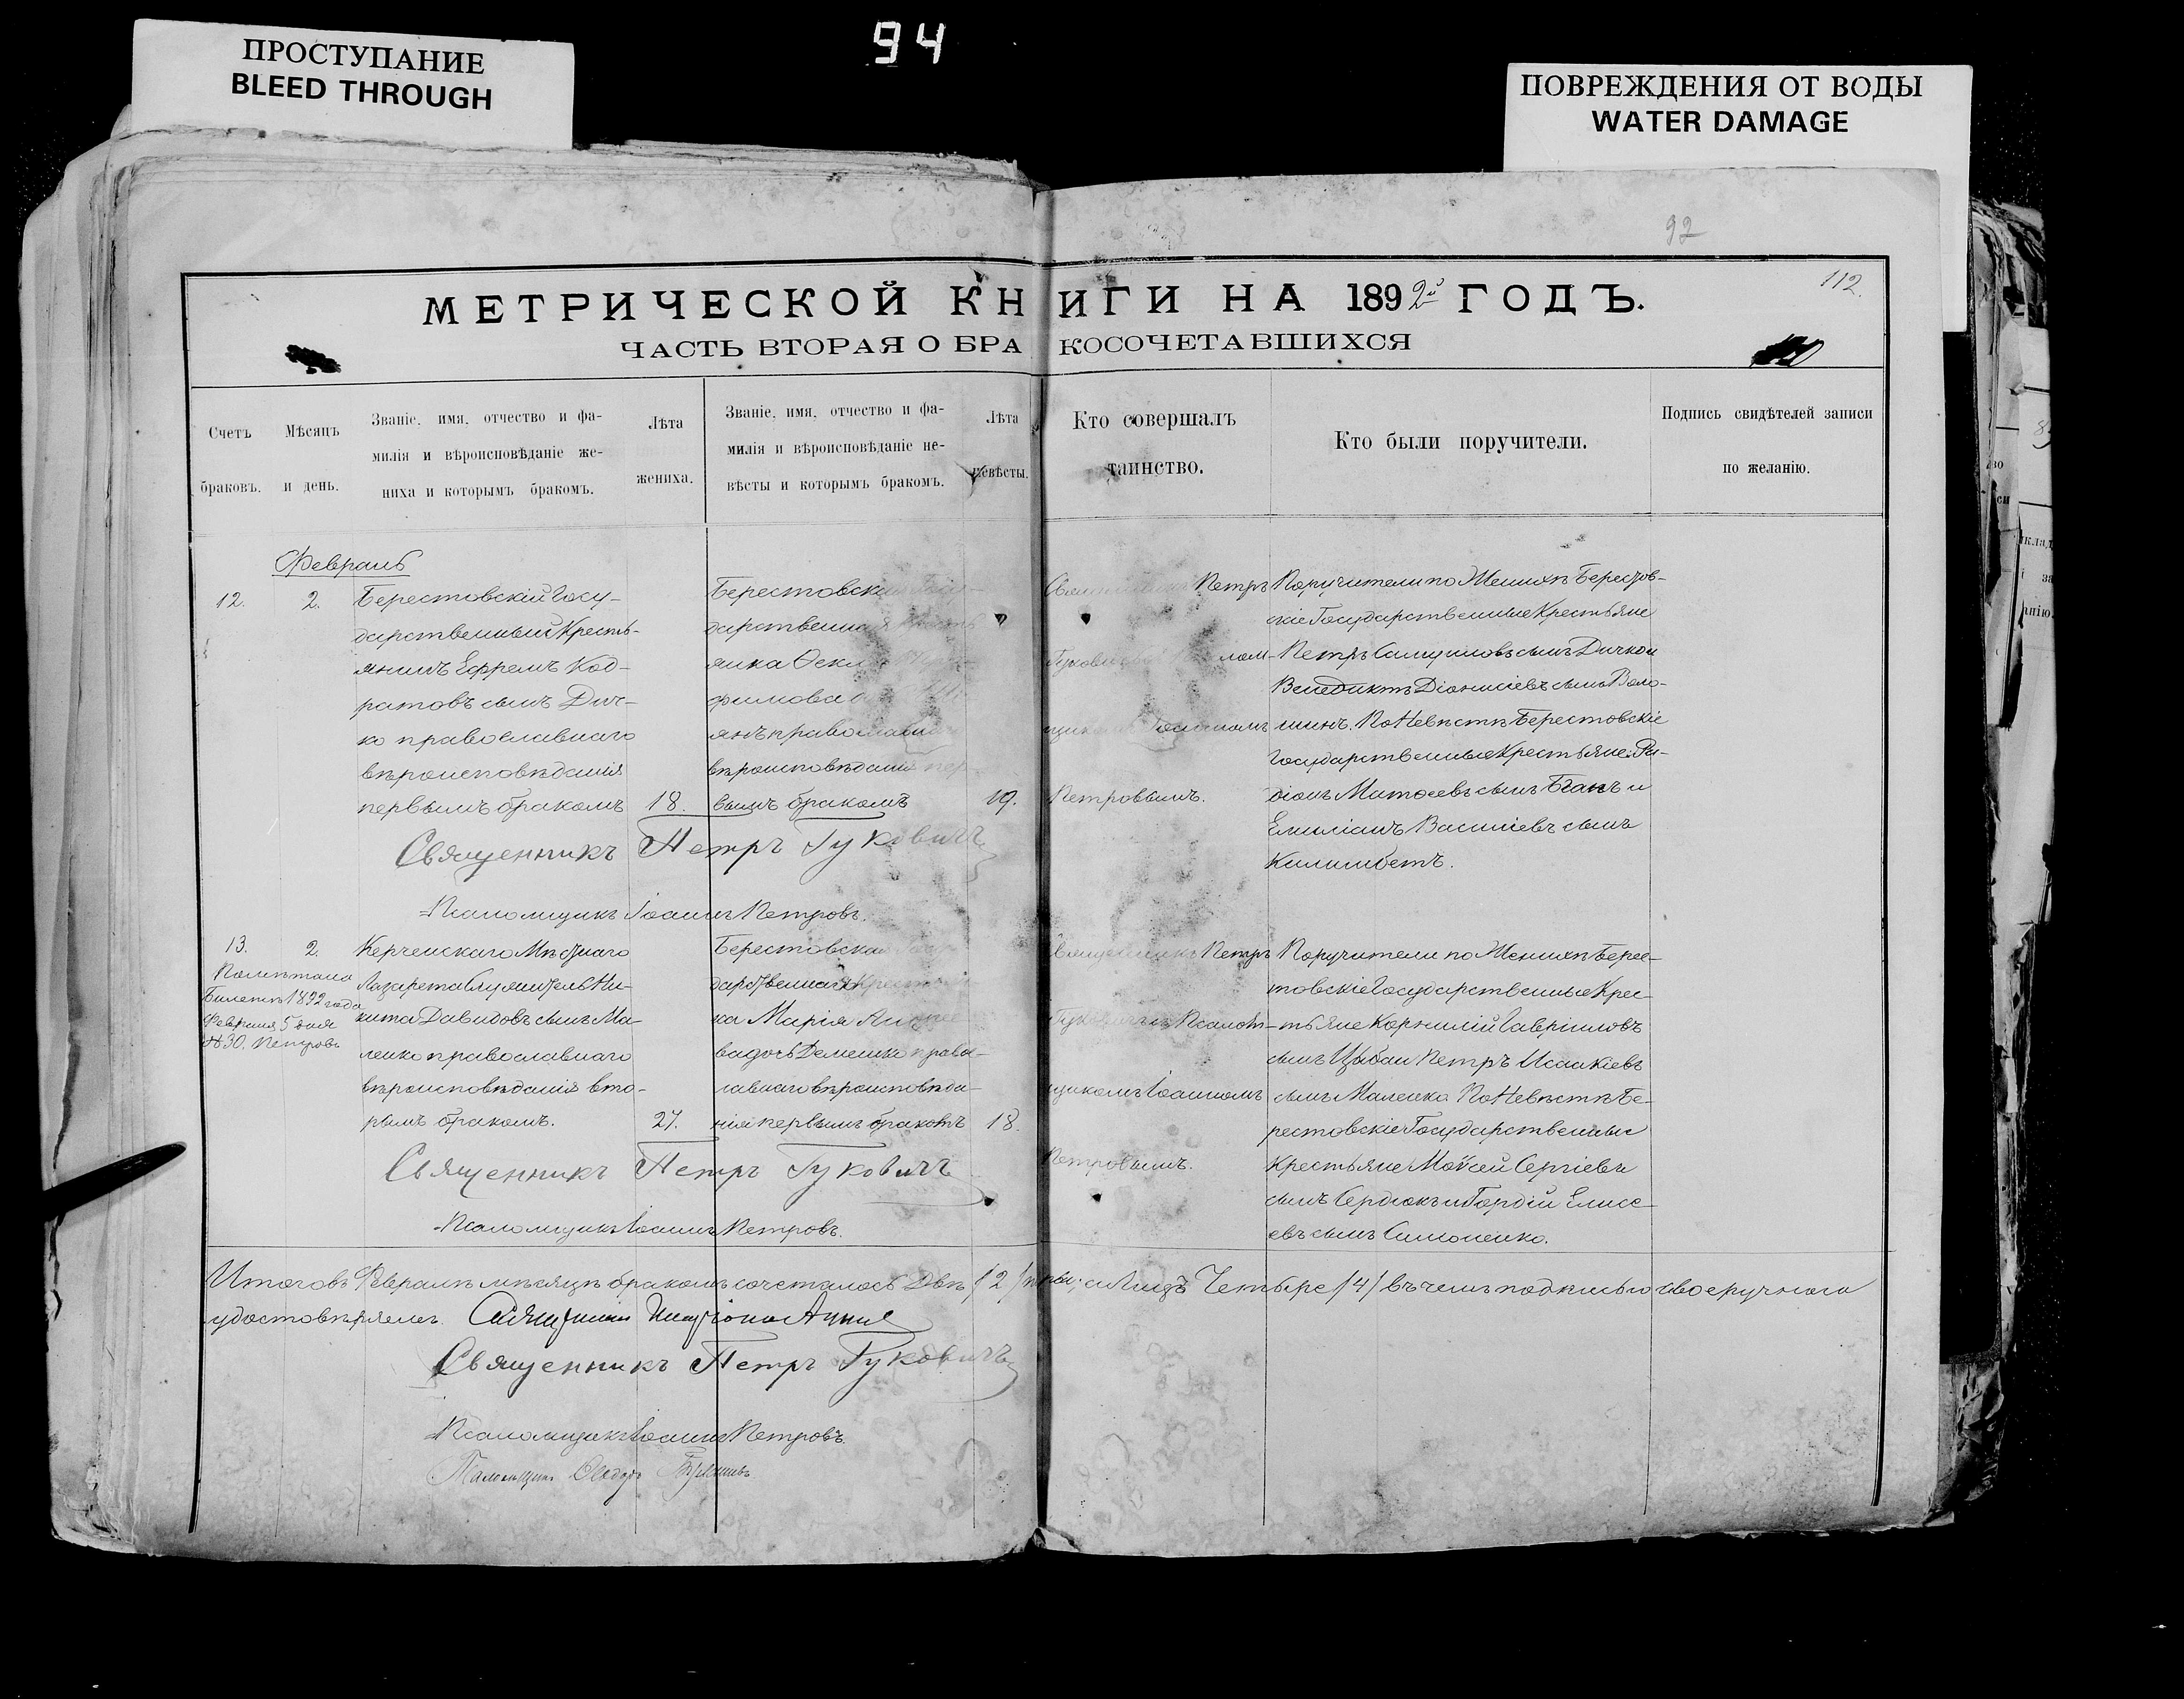 94
ПРОСТУПАНИЕ
BLEED THROUGH
ПОВРЕЖДЕНИЯ ОТ ВОДЫ
WATER DAMAGE
92
112.
МЕТРИЧЕСКОЙ КНИГИ НА 1892й ГОДЪ.
ЧАСТЬ ВТОРАЯ О БРАКОСОЧЕТАВШИХСЯ
Счетъ
браковъ.
Мѣсяцъ
и день.
Званіе, имя, отчество и фа-
милія и вѣроисповѣданіе же-
ниха и которымъ бракомъ.
Лѣта
жениха.
Званіе, имя, отчество и фа-
милія и вѣроисповѣданіе не-
вѣсты и которымъ бракомъ.
Лѣта
невѣсты.
Кто совершалъ
таинство.
Кто были поручители.
Подпись свидѣтелей записи
по желанію.
Февраль
12.
2.
Берестовскій Госу-
дарственный Кресть-
янинъ Ефремъ Код-
ратовъ сынъ Дич-
ко православнаго
вѣроисповѣданія
первымъ бракомъ
18.
Берестовская
дарственная
янка Ѳекла
фимова
янъ православнаго
вѣроисповѣданія пер-
вымъ бракомъ
19.
Петръ
лом-
щикомъ Іоанномъ
Петровымъ.
Поручители по Женихѣ Берестов-
скіе Государственные Крестьяне
Петръ Самуиловъ сынъ Дичко и
Венедиктъ Діонисіевъ сынъ Воло-
шинъ. По Невѣстѣ Берестовскіе
Государственные Крестьяне: Ра-
діонъ Матѳеевъ сынъ Бганъ и
Емиліанъ Василіевъ сынъ
Килимбетъ.
Священникъ Петръ Гуковичъ
Псаломщикъ Іоаннъ Петровъ.
13.
2.
Помѣтана
Билетѣ 1892 года
Февраля 5 дня
№ 30. Петровъ
Керченскаго Мѣстнаго
Лазарета служитель Ни-
кита Давидовъ сынъ Ма-
ленко православнаго
вѣроисповѣданія вто-
рымъ бракомъ.
27.
Берестовская
дарственная Крестьян-
ка Марія
ва дочь Демешко право-
лавнаго вѣроисповѣда-
нія первымъ бракомъ
18.
Священникъ Петръ
Гуковичъ Псалом-
щикомъ Іоанномъ
Петровымъ.
Поручители по Женихѣ Берес-
товскіе Государственные Крес-
тьяне Корнилій Гавріиловъ
сынъ Цыбан Петръ Исаакіевъ
сынъ Маленко. По Невѣстѣ Бе-
рестовскіе Государственные
Крестьяне Моѵсей Сергіевъ
сынъ Сердюкъ и Гордій Елисе-
евъ сынъ Симоненко.
Священникъ Петръ Гуковичъ
Псаломщикъ Іоаннъ Петровъ.
Итого въ Февралѣ мѣсяцѣ бракомъ сочеталось Двѣ /2/ пары, а Лицъ Четыре /4/ въ чемъ подписью своеручного
удостовѣряемъ.
Священникъ Петръ Гуковичъ
Псаломщикъ Іоаннъ Петровъ.